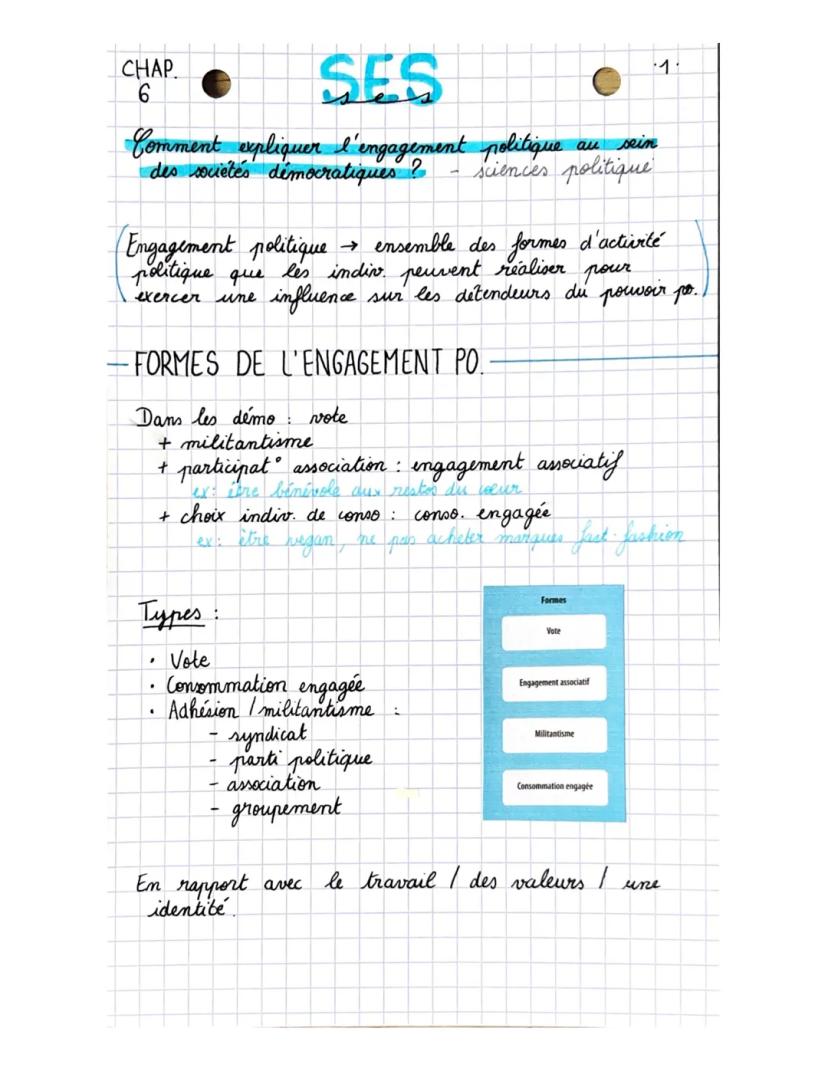 CHAP.
6
SES
ses
·1·
Comment expliquer l'engagement politique au sein
des sociétés démocratiques ? - sciences politique
Engagement politique → ensemble des formes d'activité
politique que les indiv. peuvent réaliser pour
exercer une influence sur les détendeurs du pouvoir po.
FORMES DE L'ENGAGEMENT PO.
Dans les démo : vote
+ militantisme
+ participat° association : engagement associatif
ex: être bénévole aux restos du cœur
+ choix indiv. de conso : conso. engagée
ex: être vegan, ne pas acheter marques fast-fashion
Types :
• Vote
• Consommation engagée
• Adhésion / militantisme :
- syndicat
- parti politique
- association
- groupement
Formes
Vote
Engagement associatif
Militantisme
Consommation engagée
En rapport avec le travail / des valeurs / une
identité.